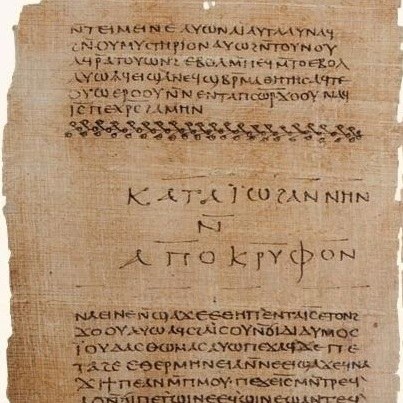 ⲛ̄ⲧⲉⲓⲙⲉⲓⲛⲉ ⲁⲩⲱ ⲛⲁⲓ ⲁⲩⲧⲁⲁⲩ ⲛⲁϥ
ϩⲛ̄ⲟⲩⲙⲩⲥⲧⲏⲣⲓⲟⲛ ⲁⲩⲱ ϩⲛ̄ⲧⲟⲩⲛⲟⲩ
ⲁϥⲣ̄ⲁⲧⲟⲩⲱⲛϩ ⲉⲃⲟⲗ ⲙ̄ⲡⲉϥⲙ̄ⲧⲟ ⲉⲃⲟⲗ
ⲁⲩⲱ ⲁϥⲉⲓ ϣⲁ ⲛⲉϥϣⲃⲣ̄ⲙⲁⲑⲏⲧⲏⲥ ⲁϥϫⲉ
ⲟⲩⲱ ⲉⲣⲟⲟⲩ ⲛ̄ⲛⲉⲛⲧⲁⲡⲥⲱⲣ ϫⲟⲟⲩ ⲛⲁϥ
ⲓ̅ⲥ̅ ⲡⲉⲭ̅ⲣ̅ⲥ̅ ϩⲁⲙⲏⲛ
ⲕⲁⲧⲁ ⲓ̈ⲱϩⲁⲛⲛⲏⲛ
ⲛ̄
ⲁⲡⲟⲕⲣⲩⲫⲟⲛ
ⲛⲁⲉⲓ ⲛⲉ ⲛ̄ϣⲁϫⲉ ⲉⲑⲏⲡ ⲉⲛⲧⲁⲓ̅ⲥ̅ ⲉⲧⲟⲛϩ
ϫⲟⲟⲩ ⲁⲩⲱ ⲁϥⲥϩⲁⲓⲥⲟⲩ ⲛ̄ϭⲓ ⲇⲓⲇⲩⲙⲟⲥ
ⲓ̈ⲟⲩⲇⲁⲥ ⲑⲱⲙⲁⲥ ⲁⲩⲱ ⲡⲉϫⲁϥ ϫⲉ ⲡⲉ
ⲧⲁϩⲉ ⲉⲑⲉⲣⲙⲏⲛⲉⲓⲁ ⲛ̄ⲛⲉⲉⲓϣⲁϫⲉ ϥⲛⲁ
ϫⲓ ϯⲡⲉ ⲁⲛ ⲙ̄ⲡⲙⲟⲩ ⲡⲉϫⲉ ⲓ̅ⲥ̅ ⲙⲛ̄ⲧⲣⲉϥ